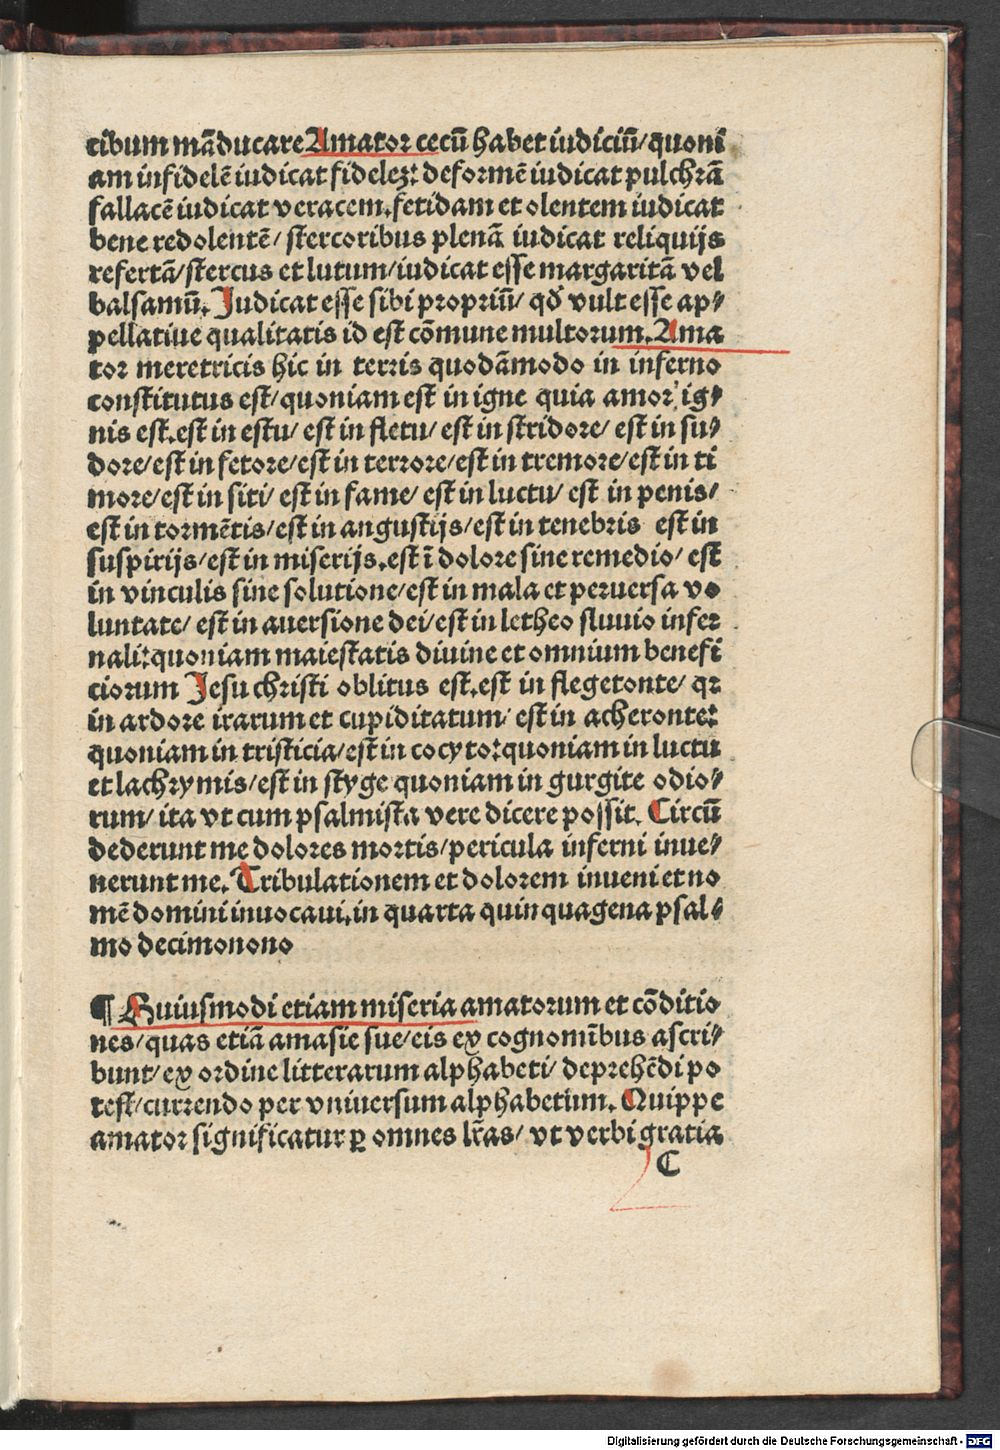 cibum mãducare Amator cecũ habet iudiciũ/quoni
am infidelẽ iudicat fidelez: deformẽ iudicat pulchrã
fallacẽ iudicat veracem.fetidam et olentem iudicat
bene redolentẽ/ stercoribus plenã iudicat reliquijs
refertã/stercus et lutum/iudicat esse margaritã vel
balsamũ. Judicat esse sibi propriũ/ qđ vult esse ap⸗
pellatiue qualitatis id est cõmune multorum. Ama
tor meretricis hic in terris quodãmodo in inferno
constitutus est/quoniam est in igne quia amor ig⸗
nis est.est in estu/ est in fletu/ est in stridore/ est in su⸗
dore/est in fetore/est in terrore/est in tremore/est in ti
more/est in siti/ est in fame/ est in luctu/ est in penis/
est in tormẽtis/est in angustijs/est in tenebris est in
suspirijs/est in miserijs.est ĩ dolore sine remedio/ est
in vinculis sine solutione/est in mala et peruersa vo
luntate/ est in auersione dei/est in letheo fluuio infer
nali:quoniam maiestatis diuine et omnium benefi
ciorum Jesu christi oblitus est.est in flegetonte/ qr
in ardore irarum et cupiditatum/ est in acheronte:
quoniam in tristicia/est in cocyto:quoniam in luctu
et lachrymis/est in styge quoniam in gurgite odio⸗
rum/ ita vt cum psalmista vere dicere possit. Circũ
dederunt me dolores mortis/pericula inferni inue⸗
nerunt me. Tribulationem et dolorem inueni et no
mẽ domini inuocaui.in quarta quinquagena psal⸗
mo decimonono
¶ Huiusmodi etiam miseria amatorum et cõditio
nes/quas etiã amasie sue/eis ex cognomĩbus ascri⸗
bunt/ ex ordine litterarum alphabeti/ deprehẽdi po
test/currendo per vniuersum alphabetum. Quippe
amator significatur ꝑ omnes lr̃as/ vt verbi gratia
C
Digitalisierung gefördert durch die Deutsche Forschungsgemeinschaft - DFG